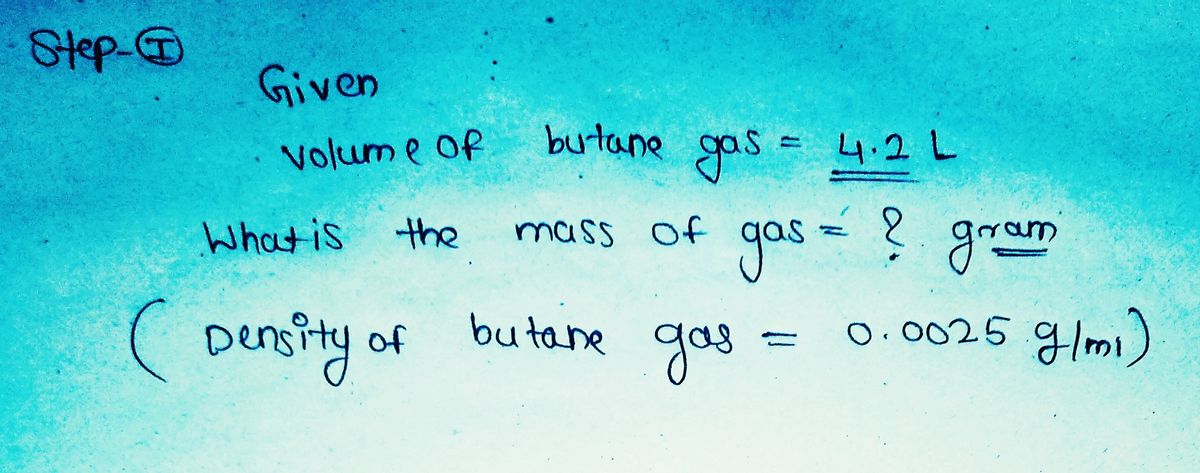 Step-Ⓘ
Given
volume of butane gas = 4.2 L
What is the mass of gas = ? gram
( Density of butane gas = 0.0025 g/ml)